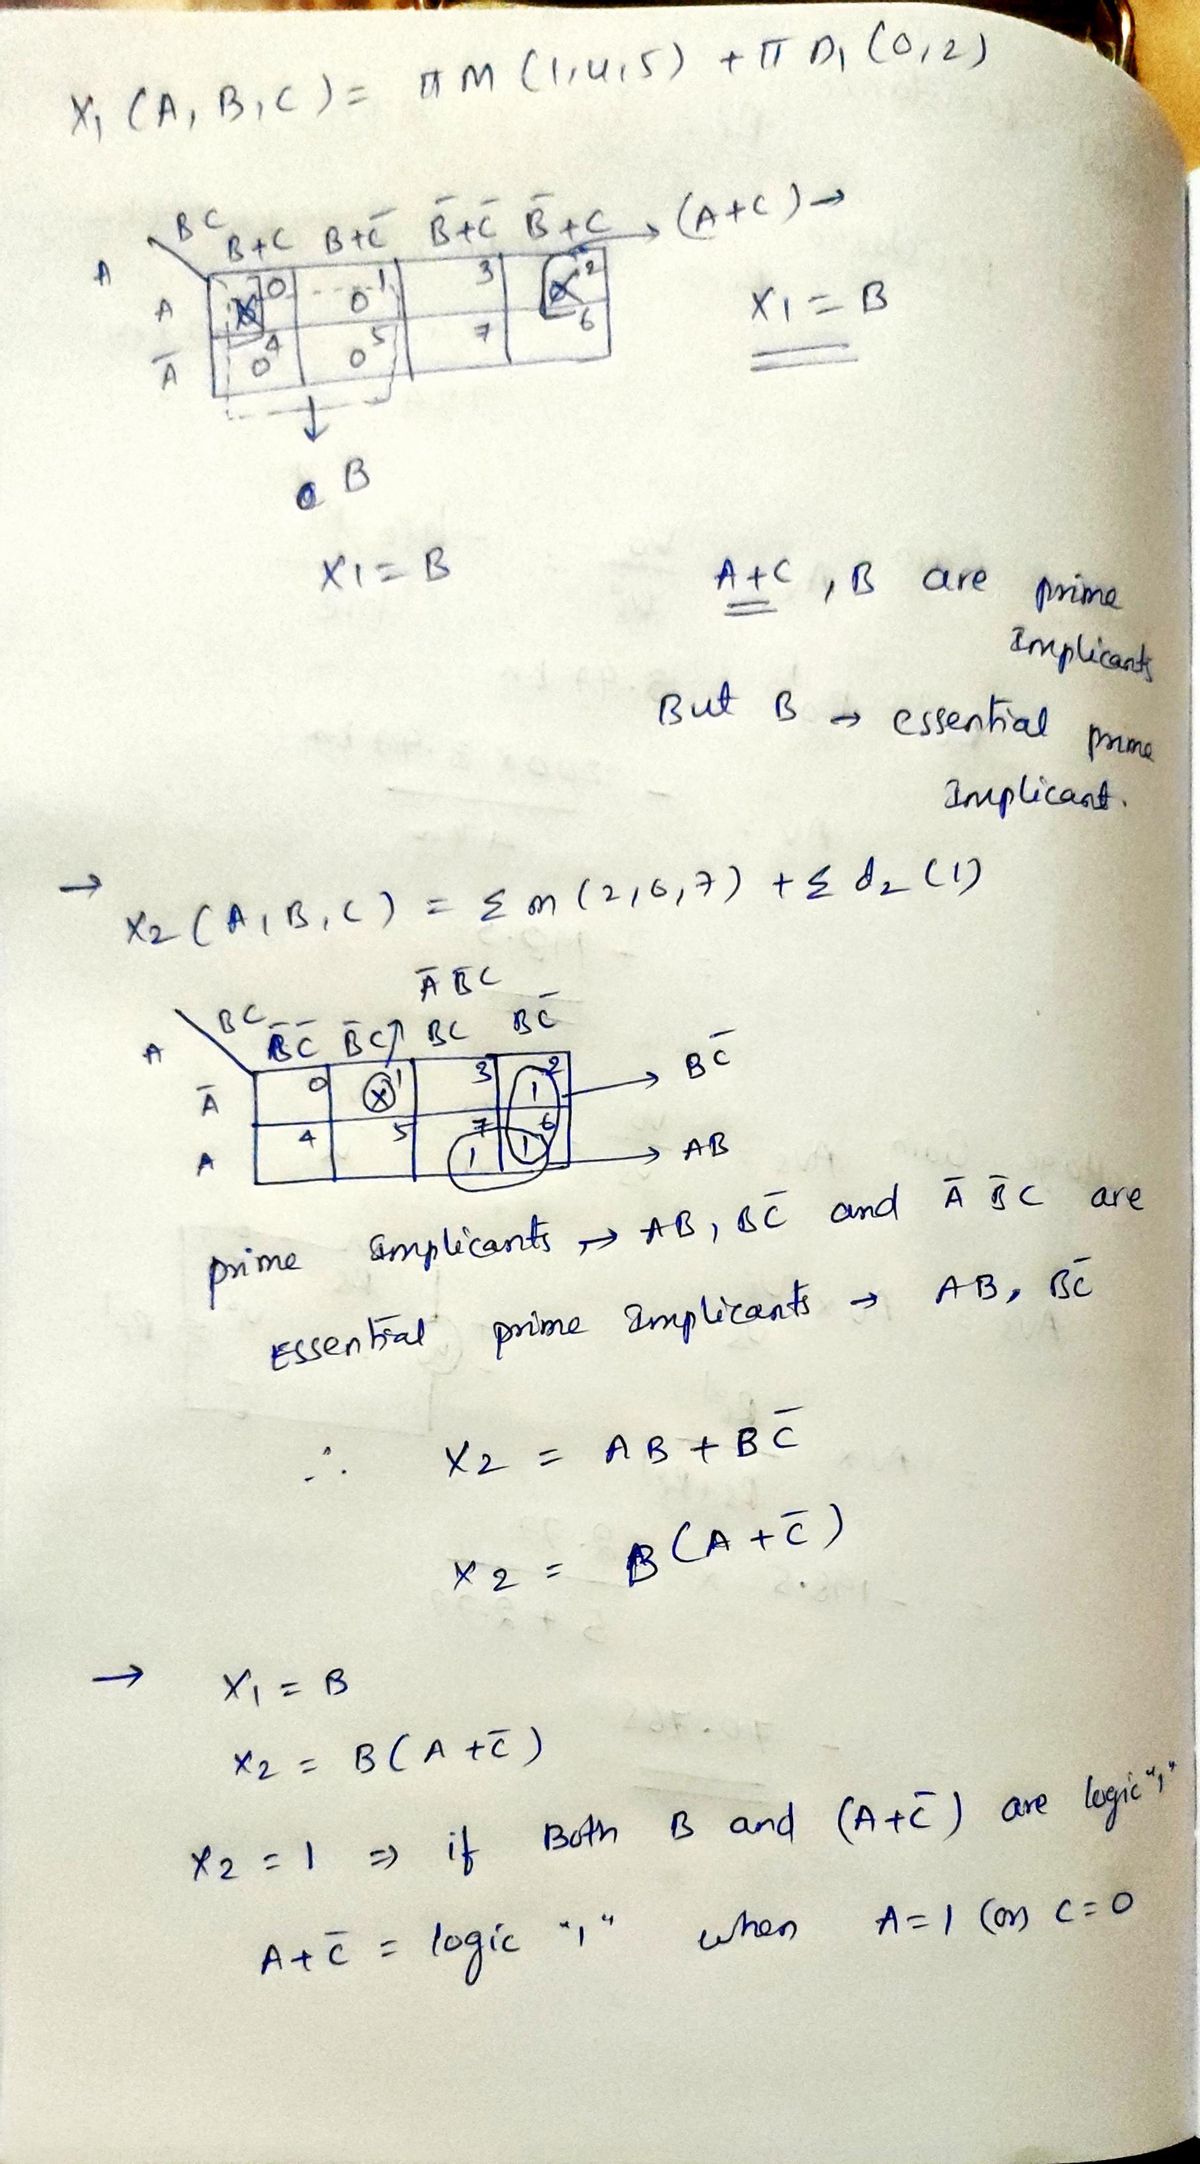 X₁ (A, B, C) = π M (1,4,5) + π D₁ (0,2)
BC B+C B+C̅ B̅+C̅ B̅+C → (A+C) →
A
A X 0 0 1 3 X 2
A̅ 0 4 0 5 7 6
X₁ = B
B
X₁ = B
A+C, B are prime
Implicants
But B → essential prime
Implicant.
→ X₂ (A, B, C) = Σ m (2,6,7) + Σ d₂ (1)
A̅ B̅ C
BC B̅C̅ B̅C BC BC̅
A
A̅ 0 X 1 3 1 2 → BC̅
A 4 5 1 7 1 6 → AB
prime implicants → AB, BC̅ and A̅ B̅ C are
Essential prime Implicants → AB, BC̅
∴ X₂ = AB + BC̅
X₂ = B (A + C̅)
→ X₁ = B
X₂ = B (A + C̅)
X₂ = 1 ⇒ if Both B and (A+C̅) are logic "1"
A + C̅ = logic "1" when A=1 (or) C=0